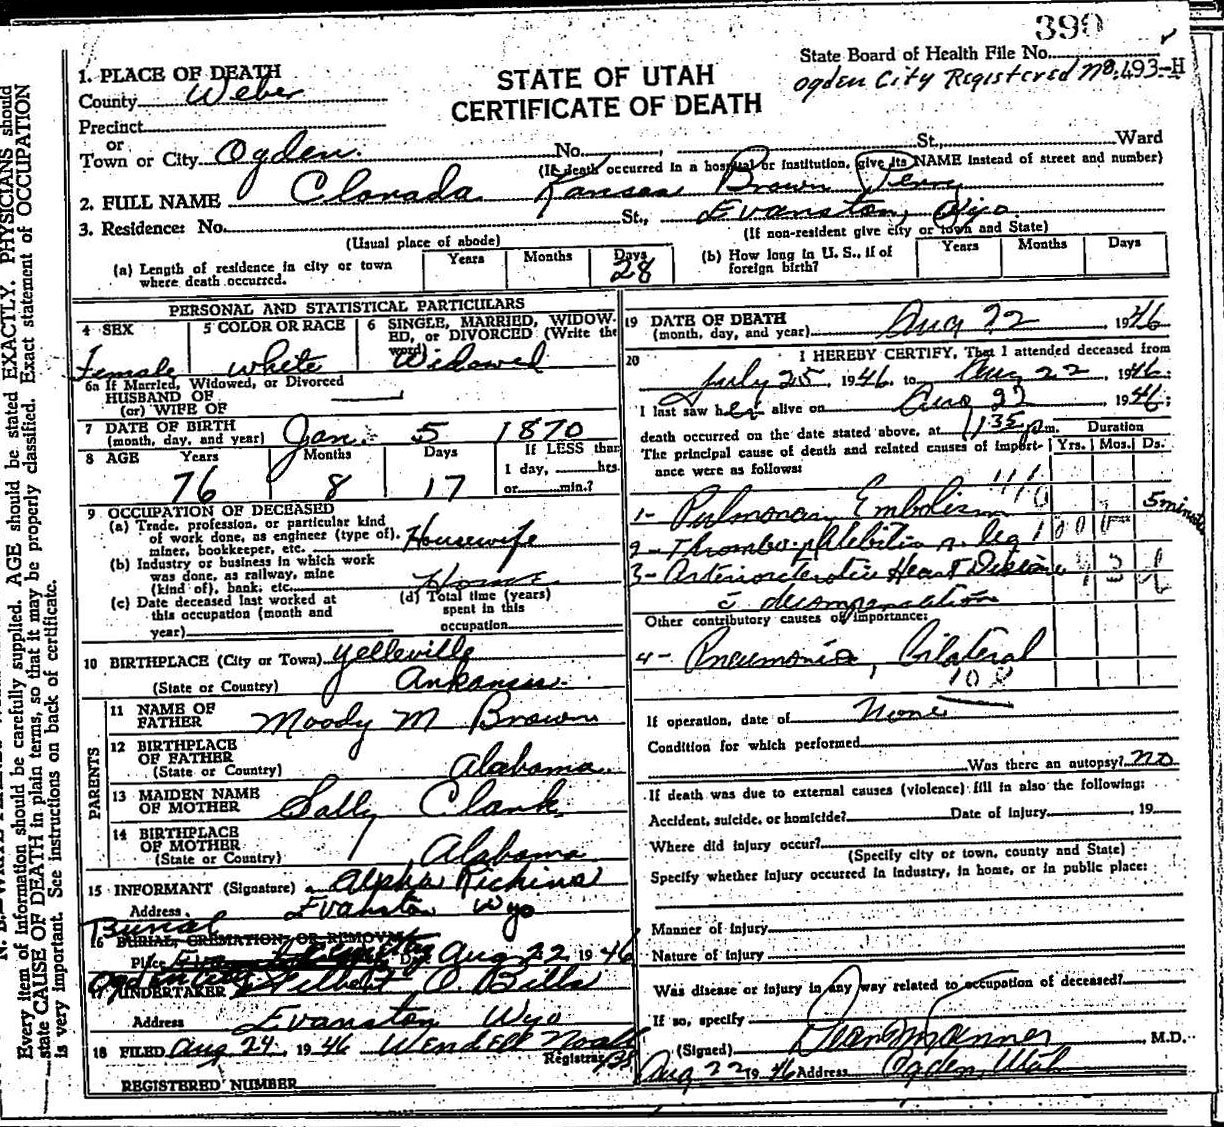 390
State Board of Health File No.
Ogden City Registered No. 493-H
STATE OF UTAH
CERTIFICATE OF DEATH
1. PLACE OF DEATH
County Weber
Precinct
or
Town or City Ogden. No. , St., Ward
(If death occurred in a hospital or institution, give its NAME instead of street and number)
2. FULL NAME Clorada Kansas Brown
3. Residence: No. St., Evanston, Wyo
(Usual place of abode) (If non-resident give city or town and State)
(a) Length of residence in city or town where death occurred. Years Months Days 28
(b) How long in U. S., if of foreign birth? Years Months Days
PERSONAL AND STATISTICAL PARTICULARS
4 SEX Female
5 COLOR OR RACE White
6 SINGLE, MARRIED, WIDOWED, or DIVORCED (Write the word) Widowed
6a If Married, Widowed, or Divorced
HUSBAND OF
(or) WIFE OF
7 DATE OF BIRTH
(month, day, and year) Jan. 5 1870
8 AGE Years Months Days If LESS than
76 8 17 1 day, hrs.
or min.?
9 OCCUPATION OF DECEASED
(a) Trade, profession, or particular kind
of work done, as engineer (type of), Housewife
miner, bookkeeper, etc.
(b) Industry or business in which work
was done, as railway, mine
(kind of), bank, etc. Home
(c) Date deceased last worked at
this occupation (month and
year)
(d) Total time (years)
spent in this
occupation
10 BIRTHPLACE (City or Town) Yellville
(State or Country) Arkansas.
PARENTS
11 NAME OF
FATHER Moody M Brown
12 BIRTHPLACE
OF FATHER
(State or Country) Alabama
13 MAIDEN NAME
OF MOTHER Sally Clark
14 BIRTHPLACE
OF MOTHER
(State or Country) Alabama
15 INFORMANT (Signature) Alpha Rickins
Address. Evanston Wyo
Burial
16 BURIAL, CREMATION, OR REMOVAL
Place Date Aug 22 1946
17 UNDERTAKER Gilbert O. Bills
Address Evanston Wyo
18 FILED Aug 24, 1946 Wendell Noall
Registrar
REGISTERED NUMBER
19 DATE OF DEATH
(month, day, and year) Aug 22 , 1946
20 I HEREBY CERTIFY, That I attended deceased from
July 25, 1946, to Aug 22, 1946;
I last saw her alive on Aug 22 1946;
death occurred on the date stated above, at 1:35 p.m. Duration
The principal cause of death and related causes of importance were as follows: Yrs. Mos. Ds.
1- Pulmonary Embolism 5 minutes
2- Thrombo-phlebitis leg
3- Arteriosclerotic Heart Disease
c decompensation
Other contributory causes of importance:
4- Pneumonia, Bilateral
If operation, date of None
Condition for which performed
Was there an autopsy? no
If death was due to external causes (violence) fill in also the following:
Accident, suicide, or homicide? Date of injury , 19
Where did injury occur?
(Specify city or town, county and State)
Specify whether injury occurred in industry, in home, or in public place:
Manner of injury
Nature of injury
Was disease or injury in any way related to occupation of deceased?
If so, specify
(Signed) M.D.
Aug 22 1946 Address Ogden, Utah
Every item of information should be carefully supplied. AGE should be stated EXACTLY. PHYSICIANS should
state CAUSE OF DEATH in plain terms, so that it may be properly classified. Exact statement of OCCUPATION
is very important. See instructions on back of certificate.